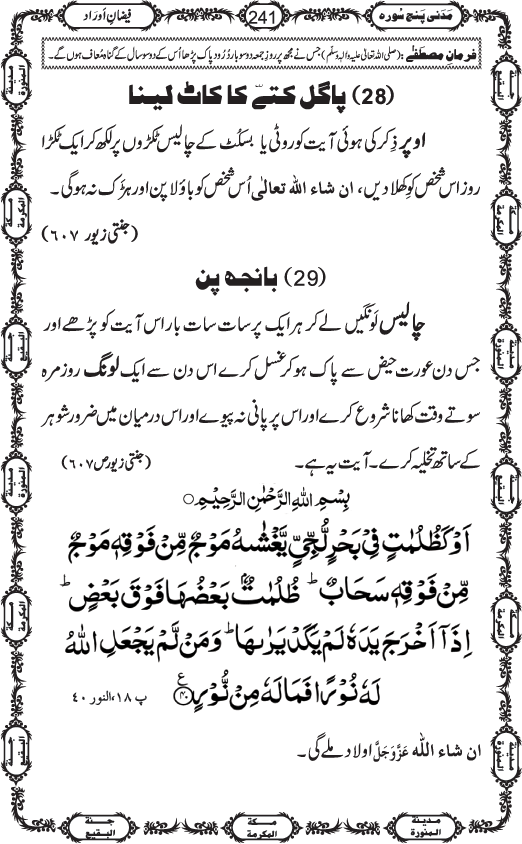 مَدَنی پنج سُورہ
241
فیضانِ اَوراد
فرمانِ مصطَفٰے : (صلی اللہ تعالیٰ علیہ والہٖ وسلّم) جس نے مجھ پر روزِ جمعہ دو سو بار دُرُود پاک پڑھا اُس کے دو سو سال کے گناہ مُعاف ہوں گے۔
(28) پاگل کتے کا کاٹ لینا
اوپر ذِکر کی ہوئی آیت کو روٹی یا بسکُٹ کے چالیس ٹکڑوں پر لکھ کر ایک ٹکڑا
روز اس شخص کو کھلا دیں، ان شاء اللہ تعالٰی اُس شخص کو باؤلا پن اور ہڑک نہ ہو گی۔
(جنتی زیور ۶۰۷)
(29) بانجھ پن
چالیس لَونگیں لے کر ہر ایک پر سات سات بار اس آیت کو پڑھے اور
جس دن عورت حیض سے پاک ہو کر غسل کرے اس دن سے ایک لونگ روزمرہ
سوتے وقت کھانا شروع کرے اور اس پر پانی نہ پیوے اور اس درمیان میں ضرور شوہر
کے ساتھ تخلیہ کرے۔ آیت یہ ہے۔ (جنتی زیور ص ۶۰۷)
بِسْمِ اللهِ الرَّحْمٰنِ الرَّحِيْمِ ○
اَوْ كَظُلُمٰتٍ فِيْ بَحْرٍ لُّجِّيٍّ يَّغْشٰىهُ مَوْجٌ مِّنْ فَوْقِهٖ مَوْجٌ
مِّنْ فَوْقِهٖ سَحَابٌ ؕ ظُلُمٰتٌۢ بَعْضُهَا فَوْقَ بَعْضٍ ؕ
اِذَاۤ اَخْرَجَ يَدَهٗ لَمْ يَكَدْ يَرٰىهَا ؕ وَمَنْ لَّمْ يَجْعَلِ اللهُ
لَهٗ نُوْرًا فَمَا لَهٗ مِنْ نُّوْرٍ ﴿۴۰﴾ع پ ۱۸، النور ۴۰
ان شاء اللہ عَزَّوَجَلَّ اولاد ملے گی۔
مدينة المنورة
مكة المكرمة
جنة البقيع
مدينة المنورة
مكة المكرمة
جنة البقيع
جنة البقيع
مكة المكرمة
مدينة المنورة
جنة البقيع
مكة المكرمة
مدينة المنورة
جنة البقيع
مكة المكرمة
مدينة المنورة